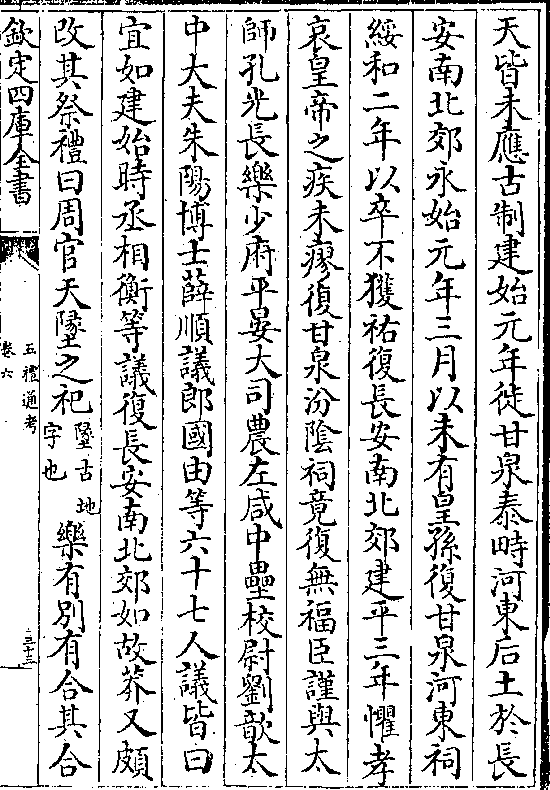 天皆未應古制建始元年徙甘泉泰畤河東后土於長
安南北郊永始元年三月以未有皇孫復甘泉河東祠
綏和二年以卒不獲祐復長安南北郊建平三年懼孝
哀皇帝之疾未瘳復甘泉汾陰祠竟復無福臣謹與太
師孔光長樂少府平晏大司農左咸中壘校尉劉歆太
中大夫朱陽博士薛順議郎國由等六十七人議皆曰
宜如建始時丞相衡等議復長安南北郊如故莽又頗
改其祭禮曰周官天墬之祀墬古地字也樂有別有合其合
欽定四庫全書
五禮通考
卷六
三十三